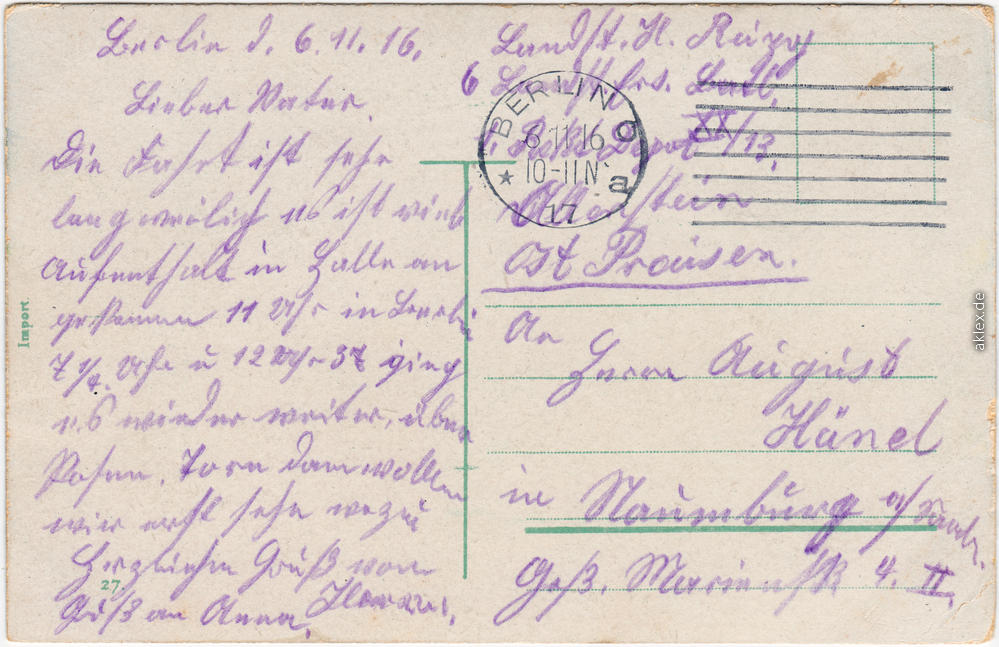 Berlin d. 6.11.16.
Lieber Vater
Die Fahrt ist sehr
langweilich es ist viel
Aufenthalt in Halle an
gekommen 11 Uhr in Berlin
7 1/4 Uhr u 12 Uhr 37 ging
es wieder weiter, über
Posen, Torn dann wollen
wir erst sehn wozu
Herzlichen Gruß von
Gruß an Anna.
Landst. H.
6 Landst. Ers. Batl.
XX/13.
Allenstein
Ost Preusen.
BERLIN 9
6 11 16
10-11N
* a
17
An
Herrn August
Hänel
in Naumburg a/Saale.
Goß. Marienstr 4. II.
Import
27
aklex.de